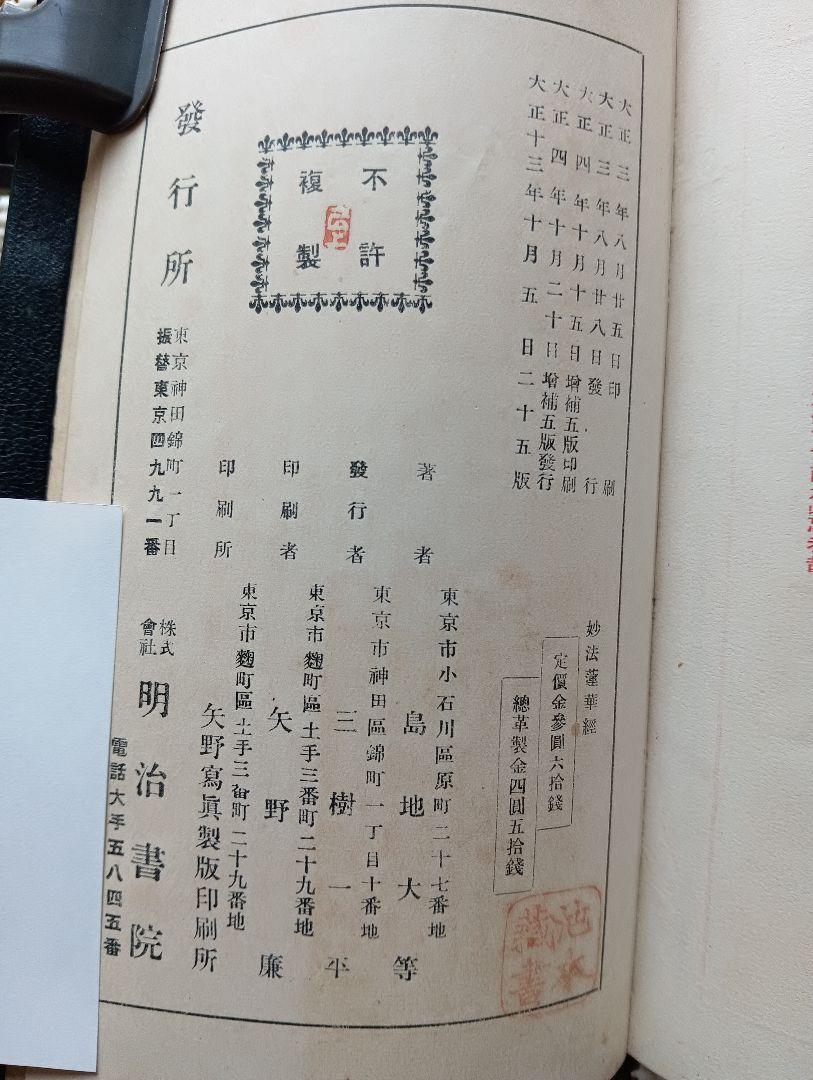 大正三年八月廿五日印刷
大正三年八月廿八日發行
大正四年十月十五日增補五版印刷
大正四年十月二十日增補五版發行
大正十三年十月五日二十五版
妙法蓮華經
定價金參圓六拾錢
總革製金四圓五拾錢
不許
複製
著者
東京市小石川區原町二十七番地
島地大等
發行者
東京市神田區錦町一丁目十番地
三樹一平
印刷者
東京市麴町區土手三番町二十九番地
矢野廉
印刷所
東京市麴町區土手三番町二十九番地
矢野寫眞製版印刷所
發行所
東京神田錦町一丁目
振替東京四九九一番
株式
會社
明治書院
電話大手五八四五番
藏書